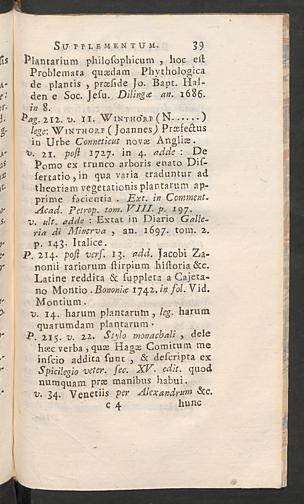 SUPPLEMENTUM. 39
Plantarium philoſophicum , hoc eſt
Problemata quædam Phythologica
de plantis , præſide Jo. Bapt. Hal-
den e Soc. Jeſu. Dilingæ an. 1686.
in 8.
Pag. 212. v. 11. WINTHORP (N......)
lege: WINTHORP ( Joannes) Præfectus
in Urbe Conneticut novæ Angliæ.
v. 21. poſt 1727. in 4. adde : De
Pomo ex trunco arboris enato Diſ-
ſertatio, in qua varia traduntur ad
theoriam vegetationis plantarum ap-
prime facientia . Ext. in Comment.
Acad. Petrop. tom. VIII. p. 197.
v. ult. adde : Extat in Diario Galle-
ria di Minerva , an. 1697. tom. 2.
p. 143. Italice.
P. 214. poſt verſ. 13. add. Jacobi Za-
nonii rariorum ſtirpium hiſtoria &c.
Latine reddita & ſuppleta a Cajeta-
no Montio . Bononiæ 1742. in fol. Vid.
Montium .
v. 14. harum plantarum , leg. harum
quarumdam plantarum .
P. 215. v. 22. Stylo monachali , dele
hæc verba, quæ Hagæ Comitum me
inſcio addita ſunt , & deſcripta ex
Spicilegio veter. ſec. XV. edit. quod
numquam præ manibus habui.
v. 34. Venetiis per Alexandrum &c.
c 4 hunc